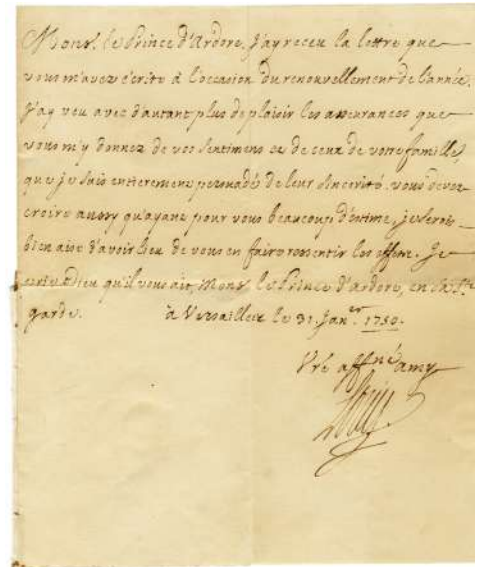 Monsr. le Prince d'Ardore, j'ay receu la lettre que
vous m'avez écrite à l'occasion du renouvellement de l'année.
J'ay veu avec d'autant plus de plaisir les asseurances que
vous m'y donnez de vos sentimens et de ceux de votre famille,
que je suis entierement persuadé de leur sincerité. vous devez
croire aussy qu'ayant pour vous beaucoup d'estime, je serois
bien aise d'avoir lieu de vous en faire ressentir les effets. Je
prie Dieu qu'il vous ait, Monsr. le Prince d'ardore, en sa Ste
garde. à Versailles le 31. Janer. 1750.
Vré affné amy
Louis